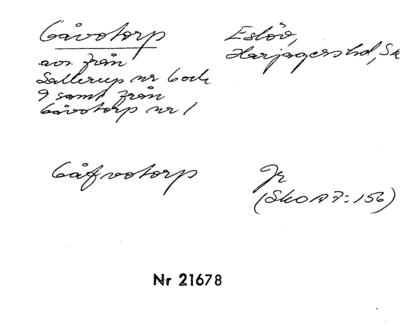 Gåvotorp
avs. från
Sallerup nr 6 och
9 samt från
Gåvotorp nr 1
Eslöv,
Harjagers hd, Sk
Gåfvotorp
Jr
(Sko A 7:156)
Nr 21678